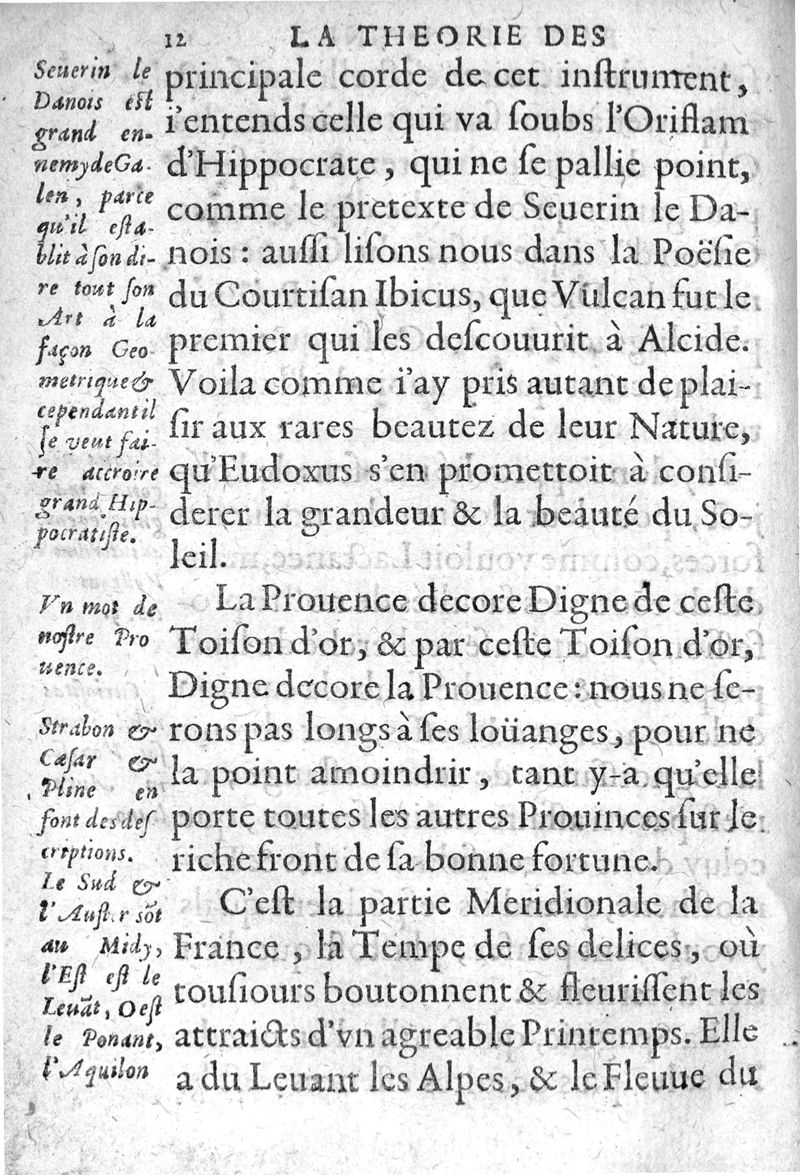 12 LA THEORIE DES
principale corde de cet inſtrument,
i'entends celle qui va ſoubs l'Oriflam
d'Hippocrate, qui ne ſe pallie point,
comme le pretexte de Seuerin le Da-
nois : auſſi liſons nous dans la Poëſie
du Courtiſan Ibicus, que Vulcan fut le
premier qui les deſcouurit à Alcide.
Voila comme i'ay pris autant de plai-
ſir aux rares beautez de leur Nature,
qu'Eudoxus s'en promettoit à conſi-
derer la grandeur & la beauté du So-
leil.
La Prouence decore Digne de ceſte
Toiſon d'or, & par ceſte Toiſon d'or,
Digne decore la Prouence : nous ne ſe-
rons pas longs à ſes loüanges, pour ne
la point amoindrir, tant y-a qu'elle
porte toutes les autres Prouinces ſur le
riche front de ſa bonne fortune.
C'eſt la partie Meridionale de la
France, la Tempe de ſes delices, où
touſiours boutonnent & fleuriſſent les
attraicts d'vn agreable Printemps. Elle
a du Leuant les Alpes, & le Fleuue du
Seuerin le
Danois eſt
grand en-
nemy de Ga-
len, parce
qu'il eſta-
blit à ſon di-
re tout ſon
Art à la
façon Geo-
metrique &
cependant il
ſe veut fai-
re accroire
grand Hip-
pocratiſte.
Vn mot de
noſtre Pro
uence.
Strabon &
Cæſar &
Pline en
font des deſ
criptions.
Le Sud &
l'Auſter sõt
au Midy,
l'Eſt eſt le
Leuãt, Oeſt
le Ponant,
l'Aquilon